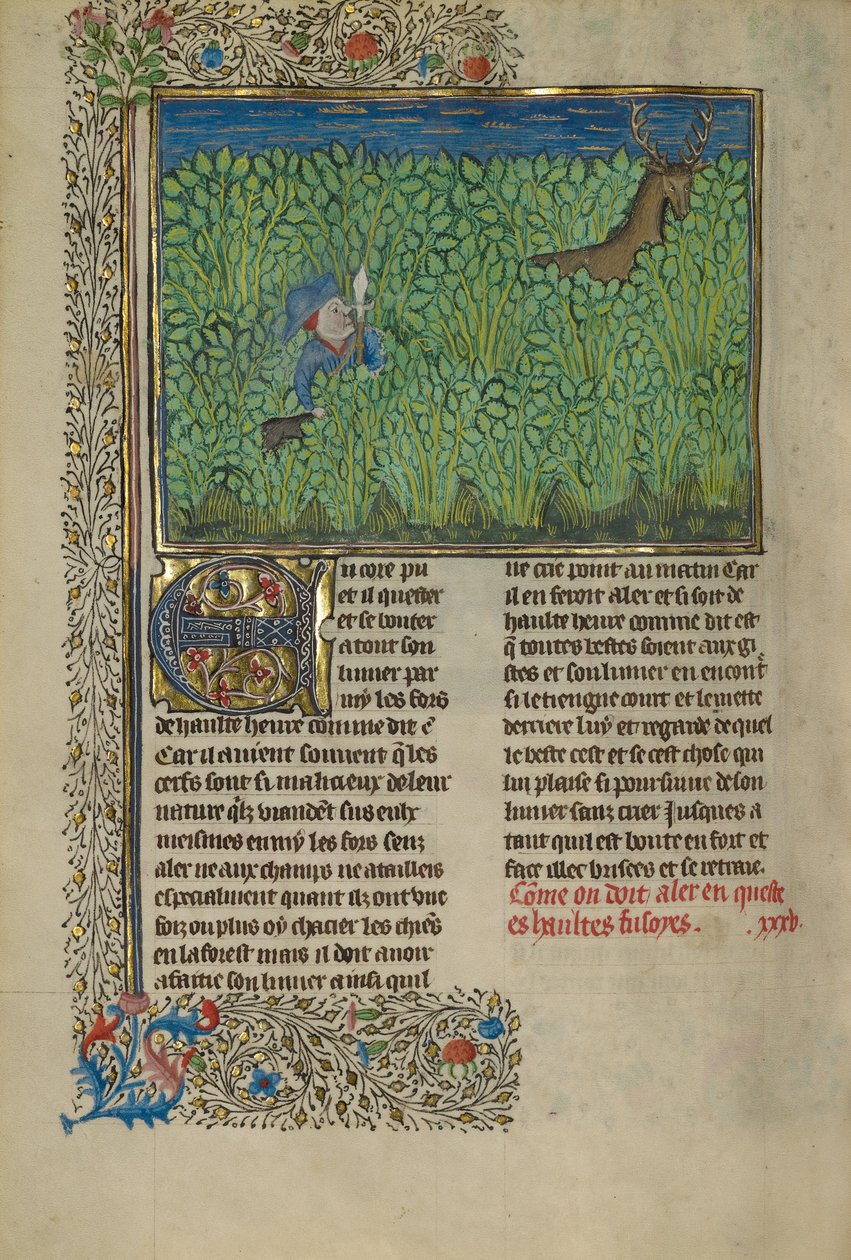 Encore pu
et il quester
et se bouter
a tout son
limier par
my les fors
de haulte heure comme dit ē
Car il avient souvent q̄ les
cerfs sont si malicieux de leur
nature q̄lz viandēt sus eulx
meismes en my les fors senz
aler ne aux champs ne a tailleis
especialment quant ilz ont une
foiz ou plus oÿ chacier les chiēs
en la forest mais il doit avoir
afaitie son limier ainsi quil
ne crie point au matin Car
il en feroit aler et si soit de
haulte heure comme dit est
q̄ toutes bestes soient aux gi
stes et son limier en encont̄
si le tiengne court et le mette
derriere luy et regarde de quel
le beste cest et se cest chose qui
lui plaise si poursuiue de son
limier sanz crier Jusques a
tant quil est boute en fort et
face illec brisees et se retraie.
Cōme on doit aler en queste
es haultes fustoyes. .xxxv.